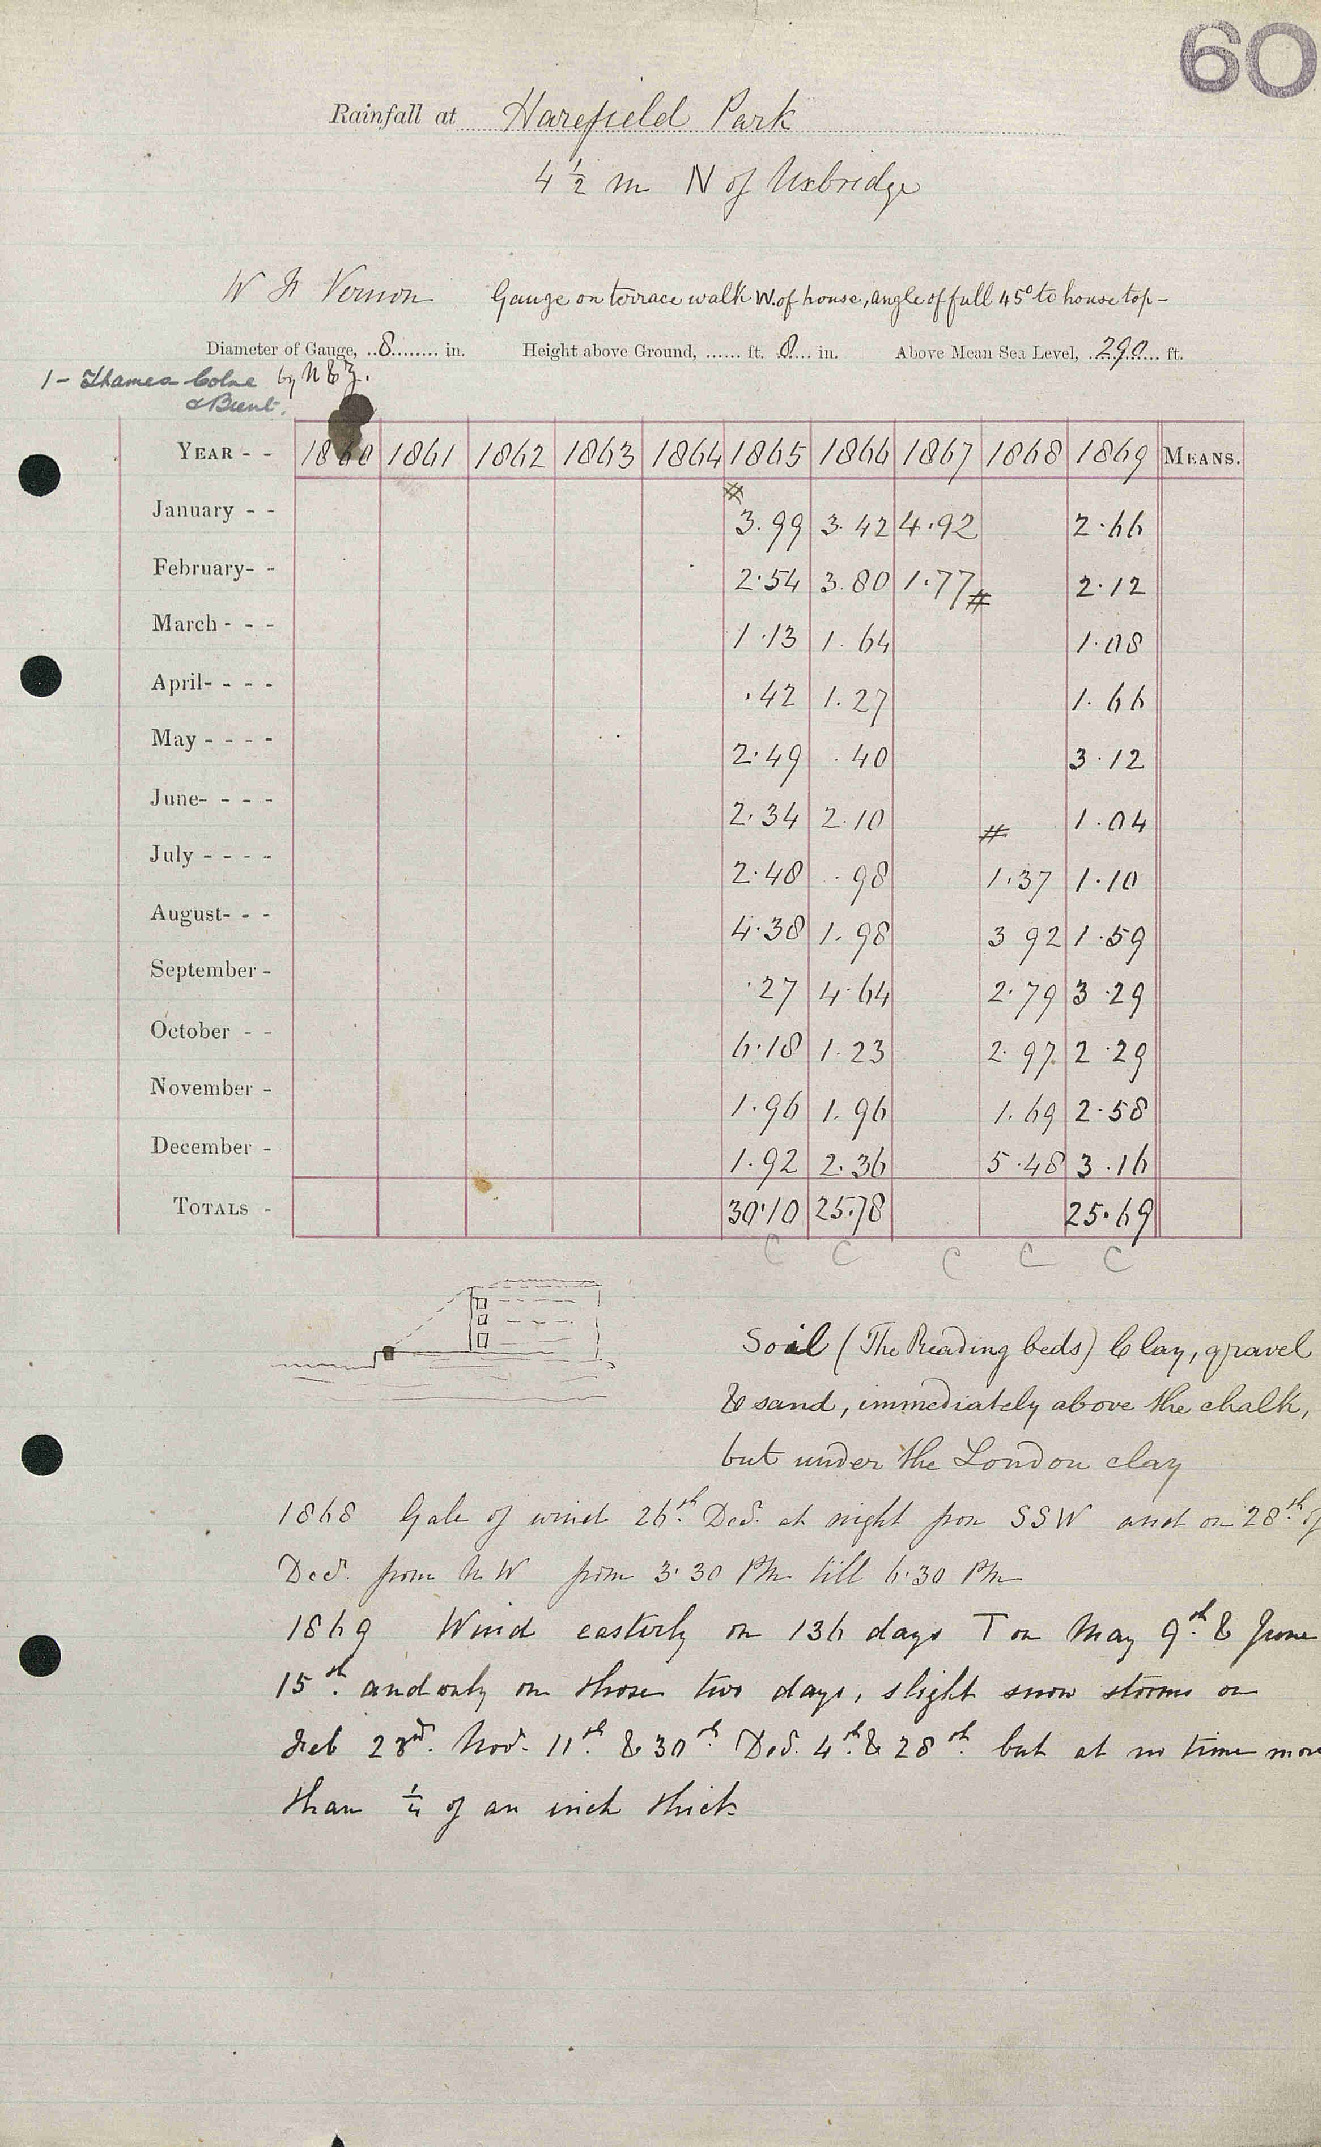 60
Rainfall at Harefield Park
4 1/2 m N of Uxbridge
W F Vernon Gauge on terrace walk W. of house, angle of full 45° to house top-
Diameter of Gauge, 8 in. Height above Ground, ...... ft. 0 in. Above Mean Sea Level, 290 ft.
1 - Thames Colne by
& Brent.
YEAR - - 1860 1861 1862 1863 1864 1865 1866 1867 1868 1869 MEANS.
January - - # 3.99 3.42 4.92 2.66
February- - 2.54 3.80 1.77 # 2.12
March - - - 1.13 1.64 1.08
April- - - - .42 1.27 1.66
May - - - - 2.49 .40 3.12
June- - - - 2.34 2.10 # 1.04
July - - - - 2.48 .98 1.37 1.10
August- - - 4.38 1.98 3 92 1.59
September - .27 4.64 2.79 3.29
October - - 6.18 1.23 2.97 2.29
November - 1.96 1.96 1.69 2.58
December - 1.92 2.36 5.48 3.16
TOTALS - 30.10 25.78 25.69
C C C C C
Soil (The Reading beds) Clay, gravel
& sand, immediately above the chalk,
but under the London clay
1868 Gale of wind 26th. Decr. at night from SSW and on 28th. of
Decr. from N W from 3.30 PM till 6.30 PM
1869 Wind easterly on 136 days T on May 9th. & June
15th. and only on those two days, slight snow storms on
Feb 23rd. Novr. 11th. & 30th. Decr. 4th. & 28th. but at no time more
than 1/4 of an inch thick